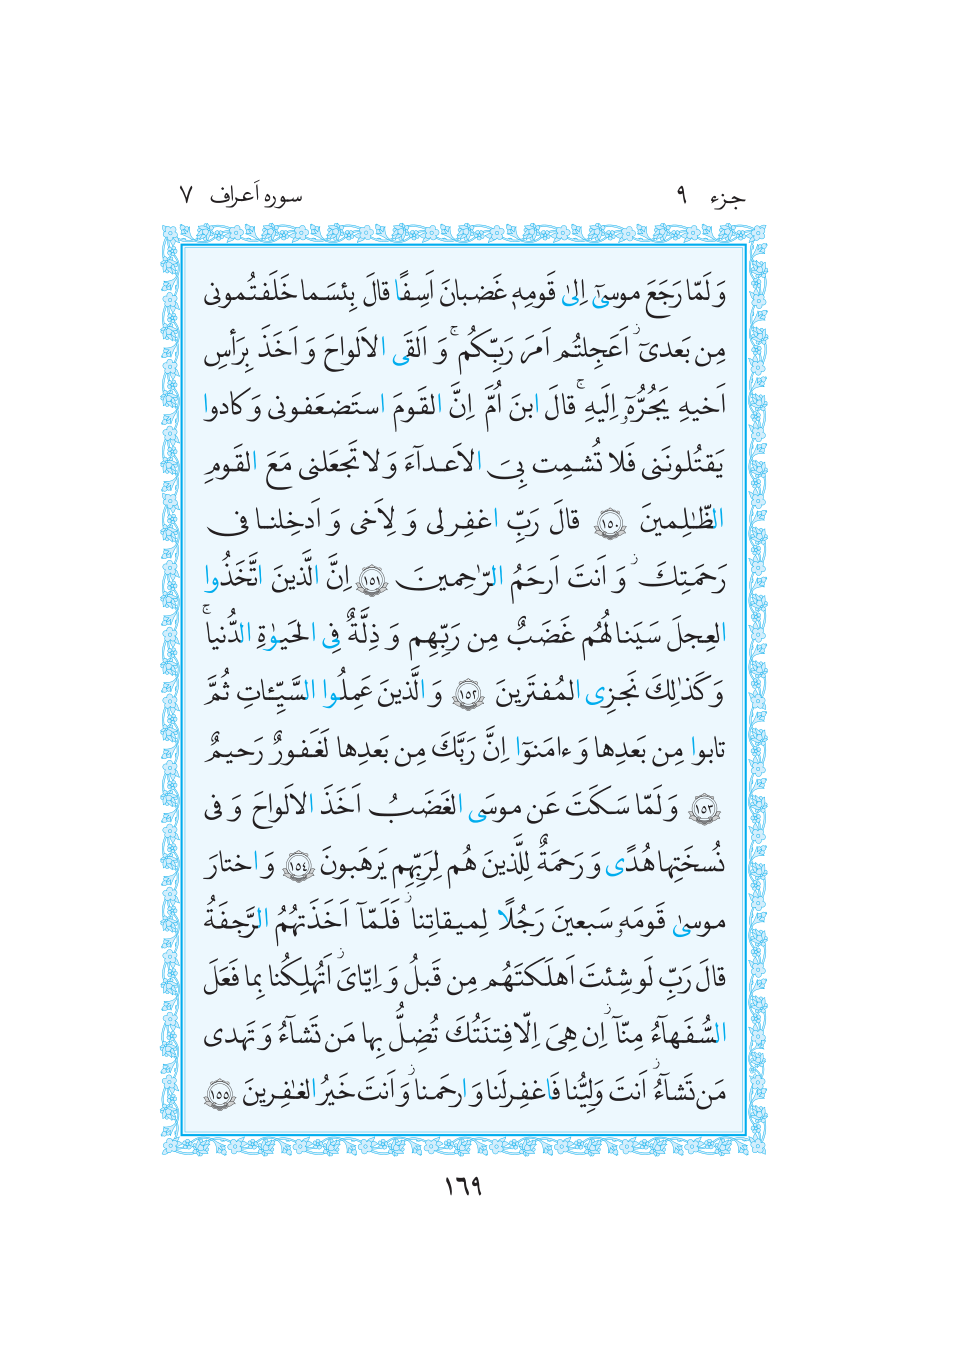 جزء ٩ سوره اَعراف ٧
وَ لَمّا رَجَعَ موسىٰٓ اِلىٰ قَومِهٖ غَضبانَ اَسِفًا قالَ بِئسَما خَلَفتُمونى
مِن بَعدىٓ ۖ اَعَجِلتُم اَمرَ رَبِّكُم ۚ وَ اَلقَى الاَلواحَ وَ اَخَذَ بِرَأسِ
اَخيهِ يَجُرُّهٗٓ اِلَيهِ ۚ قالَ ابنَ اُمَّ اِنَّ القَومَ استَضعَفونى وَ كادوا
يَقتُلونَنى فَلا تُشمِت بِىَ الاَعدآءَ وَ لا تَجعَلنى مَعَ القَومِ
الظّٰلِمينَ ١٥٠ قالَ رَبِّ اغفِر لى وَ لِاَخى وَ اَدخِلنا فى
رَحمَتِكَ ۖ وَ اَنتَ اَرحَمُ الرّٰحِمينَ ١٥١ اِنَّ الَّذينَ اتَّخَذُوا
العِجلَ سَيَنالُهُم غَضَبٌ مِن رَبِّهِم وَ ذِلَّةٌ فِى الحَيوٰةِ الدُّنيا ۚ
وَ كَذٰلِكَ نَجزِى المُفتَرينَ ١٥٢ وَ الَّذينَ عَمِلُوا السَّيِّـٔاتِ ثُمَّ
تابوا مِن بَعدِها وَ ءامَنوٓا اِنَّ رَبَّكَ مِن بَعدِها لَغَفورٌ رَحيمٌ
١٥٣ وَ لَمّا سَكَتَ عَن موسَى الغَضَبُ اَخَذَ الاَلواحَ وَ فى
نُسخَتِها هُدًى وَ رَحمَةٌ لِلَّذينَ هُم لِرَبِّهِم يَرهَبونَ ١٥٤ وَ اختارَ
موسىٰ قَومَهٗ سَبعينَ رَجُلًا لِميقاتِنا ۖ فَلَمّآ اَخَذَتهُمُ الرَّجفَةُ
قالَ رَبِّ لَو شِئتَ اَهلَكتَهُم مِن قَبلُ وَ اِيّاىَ ۖ اَتُهلِكُنا بِما فَعَلَ
السُّفَهآءُ مِنّآ ۖ اِن هِىَ اِلّا فِتنَتُكَ تُضِلُّ بِها مَن تَشآءُ وَ تَهدى
مَن تَشآءُ ۖ اَنتَ وَلِيُّنا فَاغفِر لَنا وَ ارحَمنا ۖ وَ اَنتَ خَيرُ الغٰفِرينَ ١٥٥
١٦٩